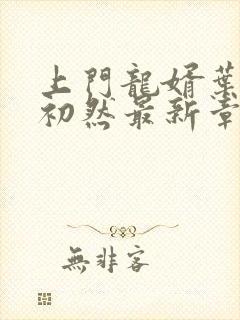 上門龍婿葉
初然最新章
無非客